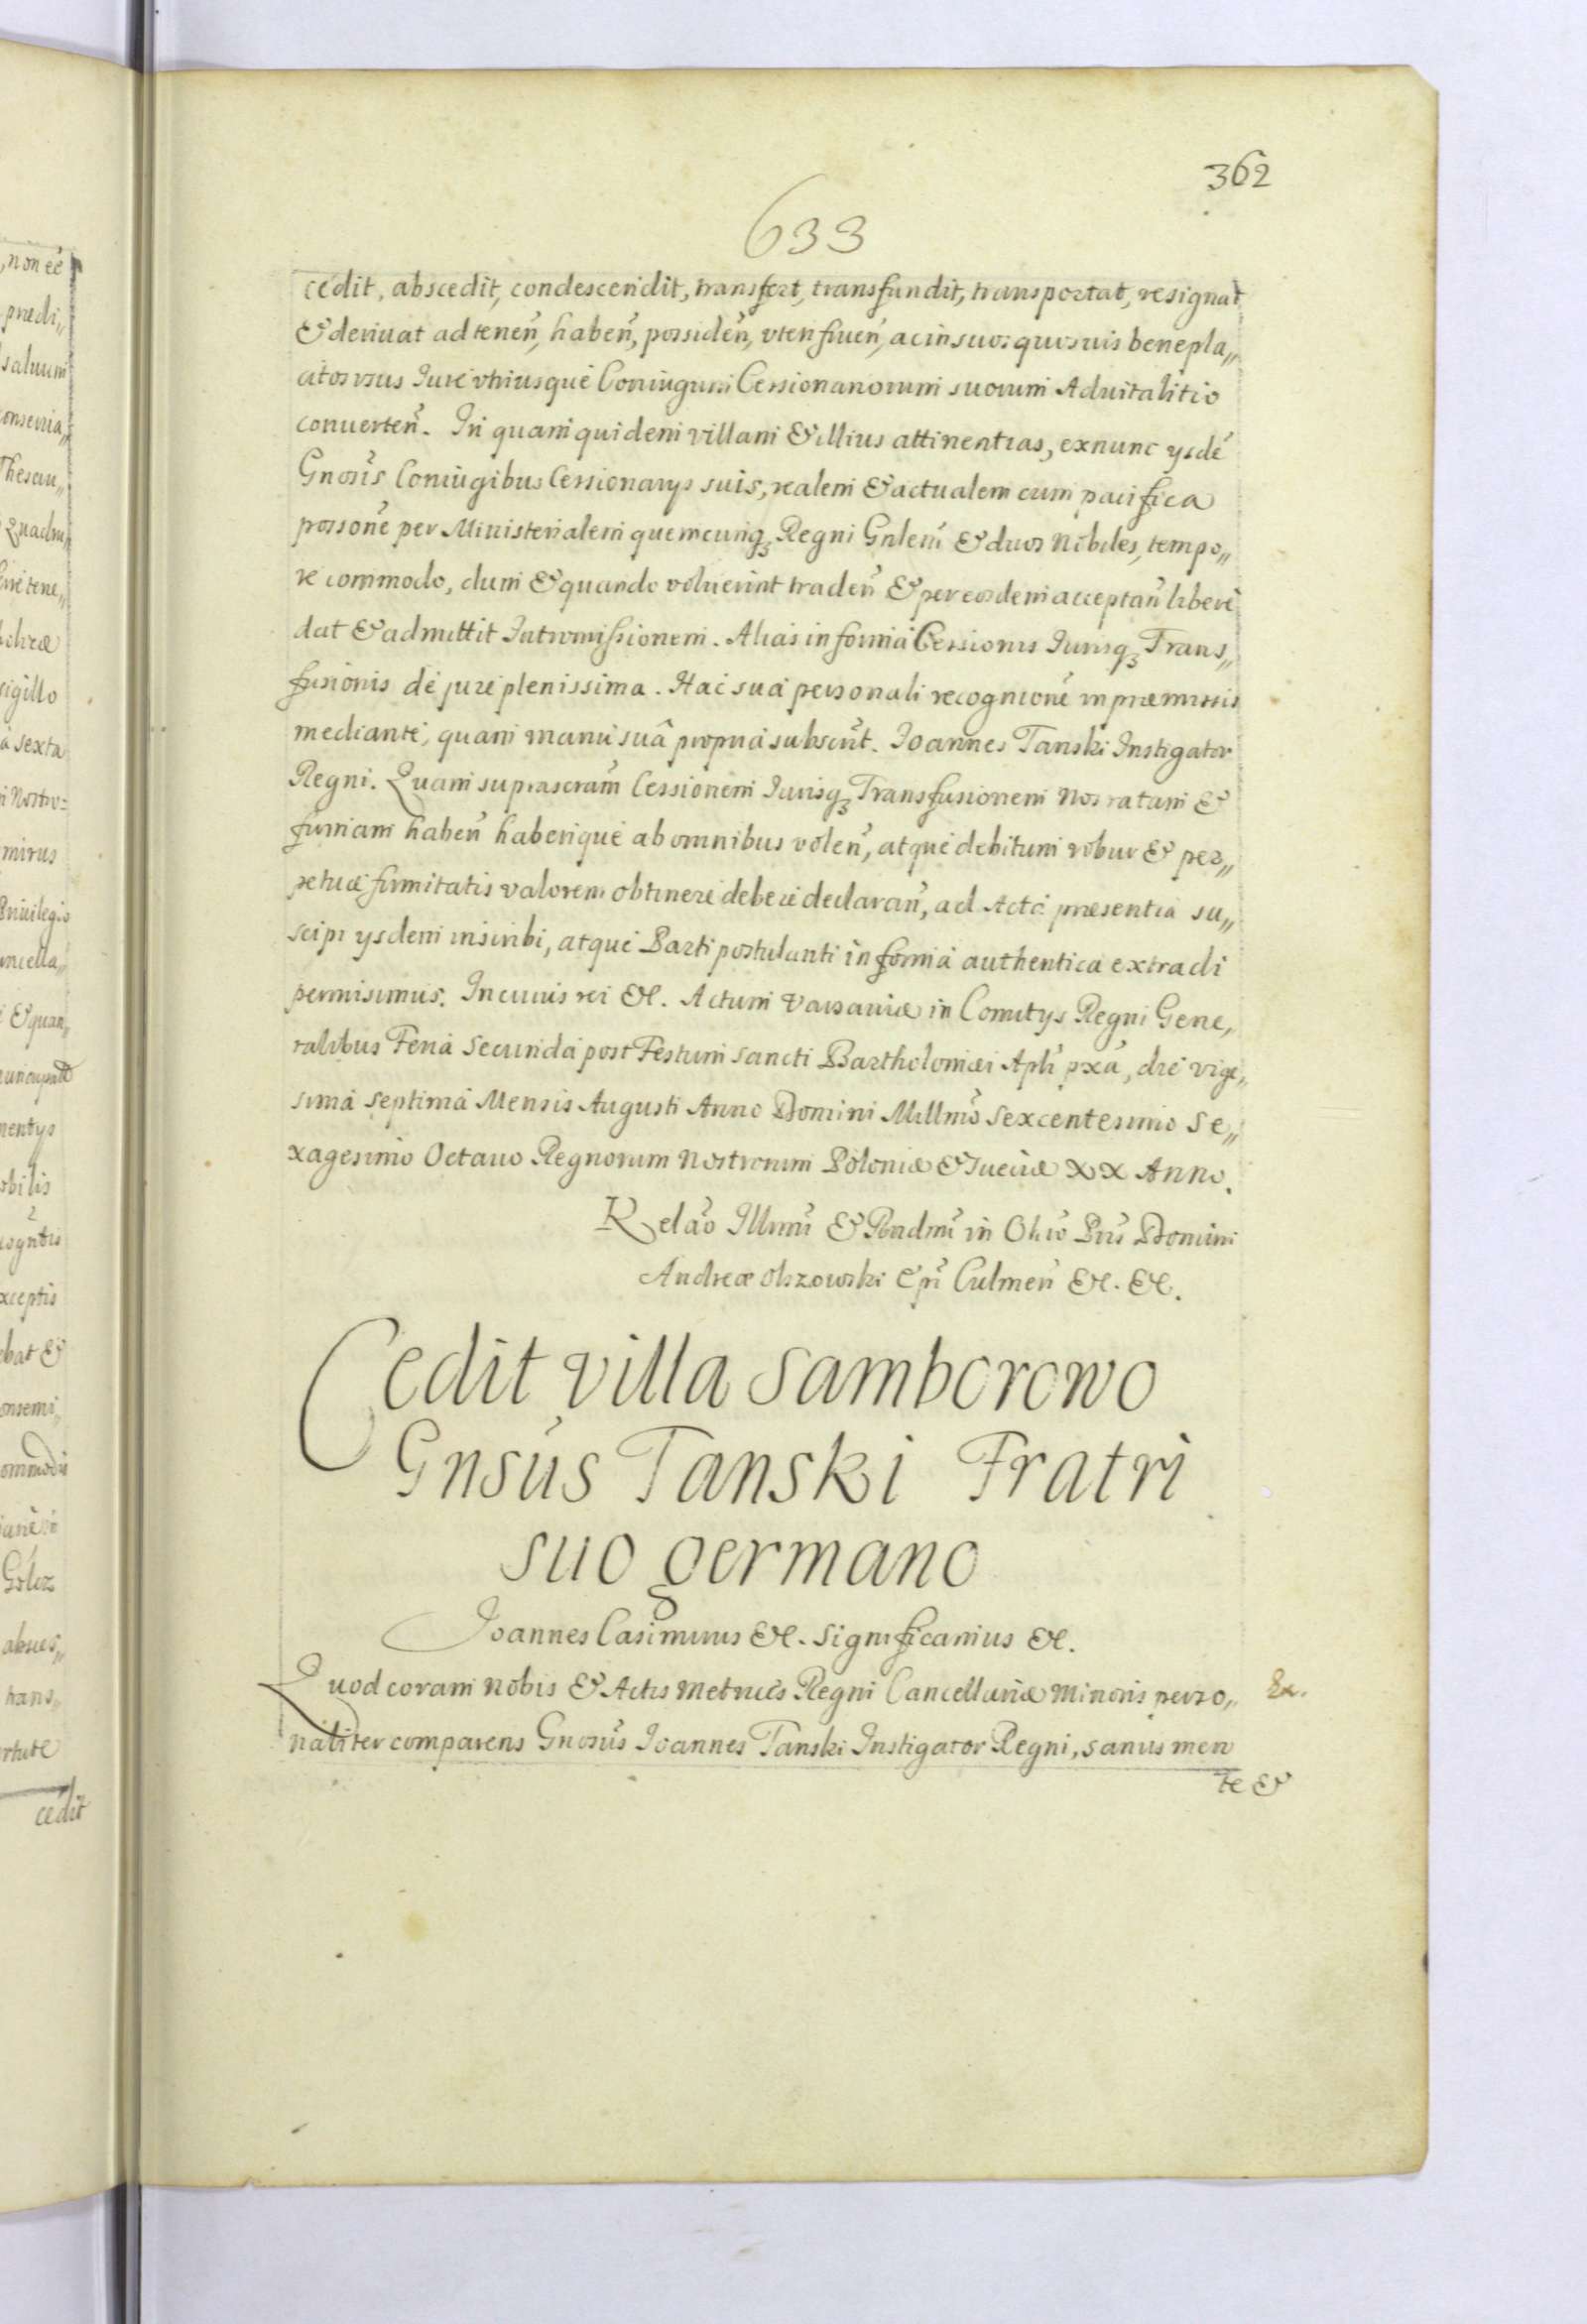 362
633
cedit, abscedit, condescendit, transfert, transfundit, transportat, resignat
& deriuat ad tenen̄, haben̄, possiden̄, vten fruen̄, ac in suos quosuis benepla„
citos vsus Jure vtriusque Coniugum Cessionariorum suorum Aduitalitio
conuerten̄. In quam quidem villam & illius attinentias, ex nunc ysdē
Gnosis̄ Coniugibus Cessionarys suis, realem & actualem cum pacifica
possonē per Ministerialem quemcunq₃ Regni Gnlem̄ & duos Nobiles, tempo„
re commodo, dum & quando voluerint traden̄ & per eosdem acceptan̄ liberè
dat & admittit Intromissionem. Alias in formâ Cessionis Jurisq₃ Trans„
fusionis de jure plenissima. Hac sua personali recognitionē in præmissis
mediante, quam manu suâ propria subscrit̄. Joannes Tanski Instigator
Regni. Quam suprascram̄ Cessionem Jurisq₃ Transfusionem Nos ratam &
firmam haben̄ haberique ab omnibus volen̄, atque debitum robur & per„
petuæ firmitatis valorem obtinere debere declaran̄, ad Acta præsentia su„
scipi ysdem inscribi, atque Parti postulanti in forma authentica extradi
permisimus. In cuius rei &c. Actum Varsauiæ in Comitys Regni Gene„
ralibus Feria Secunda post Festum Sancti Bartholomæi Apli̅ pxā, die vige„
sima Septima Mensis Augusti Anno Domini Millmō Sexcentesimo Se„
xagesimo Octauo Regnorum Nostrorum Poloniæ & Sueciæ XX Anno.
Relaō Illmi̅ & Rndmi̅ in Chrō Pris̄ Domini
Andreæ Olszowski Epi̅ Culmen̄ &c. &c.
Cedit villa Samborowo
Gnsūs Tanski Fratri
suo germano
Joannes Casimirus &c. Significamus &c.
Quod coram Nobis & Actis Metrices Regni Cancellariæ Minoris perso„
naliter comparens Gnosūs Joannes Tanski Instigator Regni, sanus men
te &